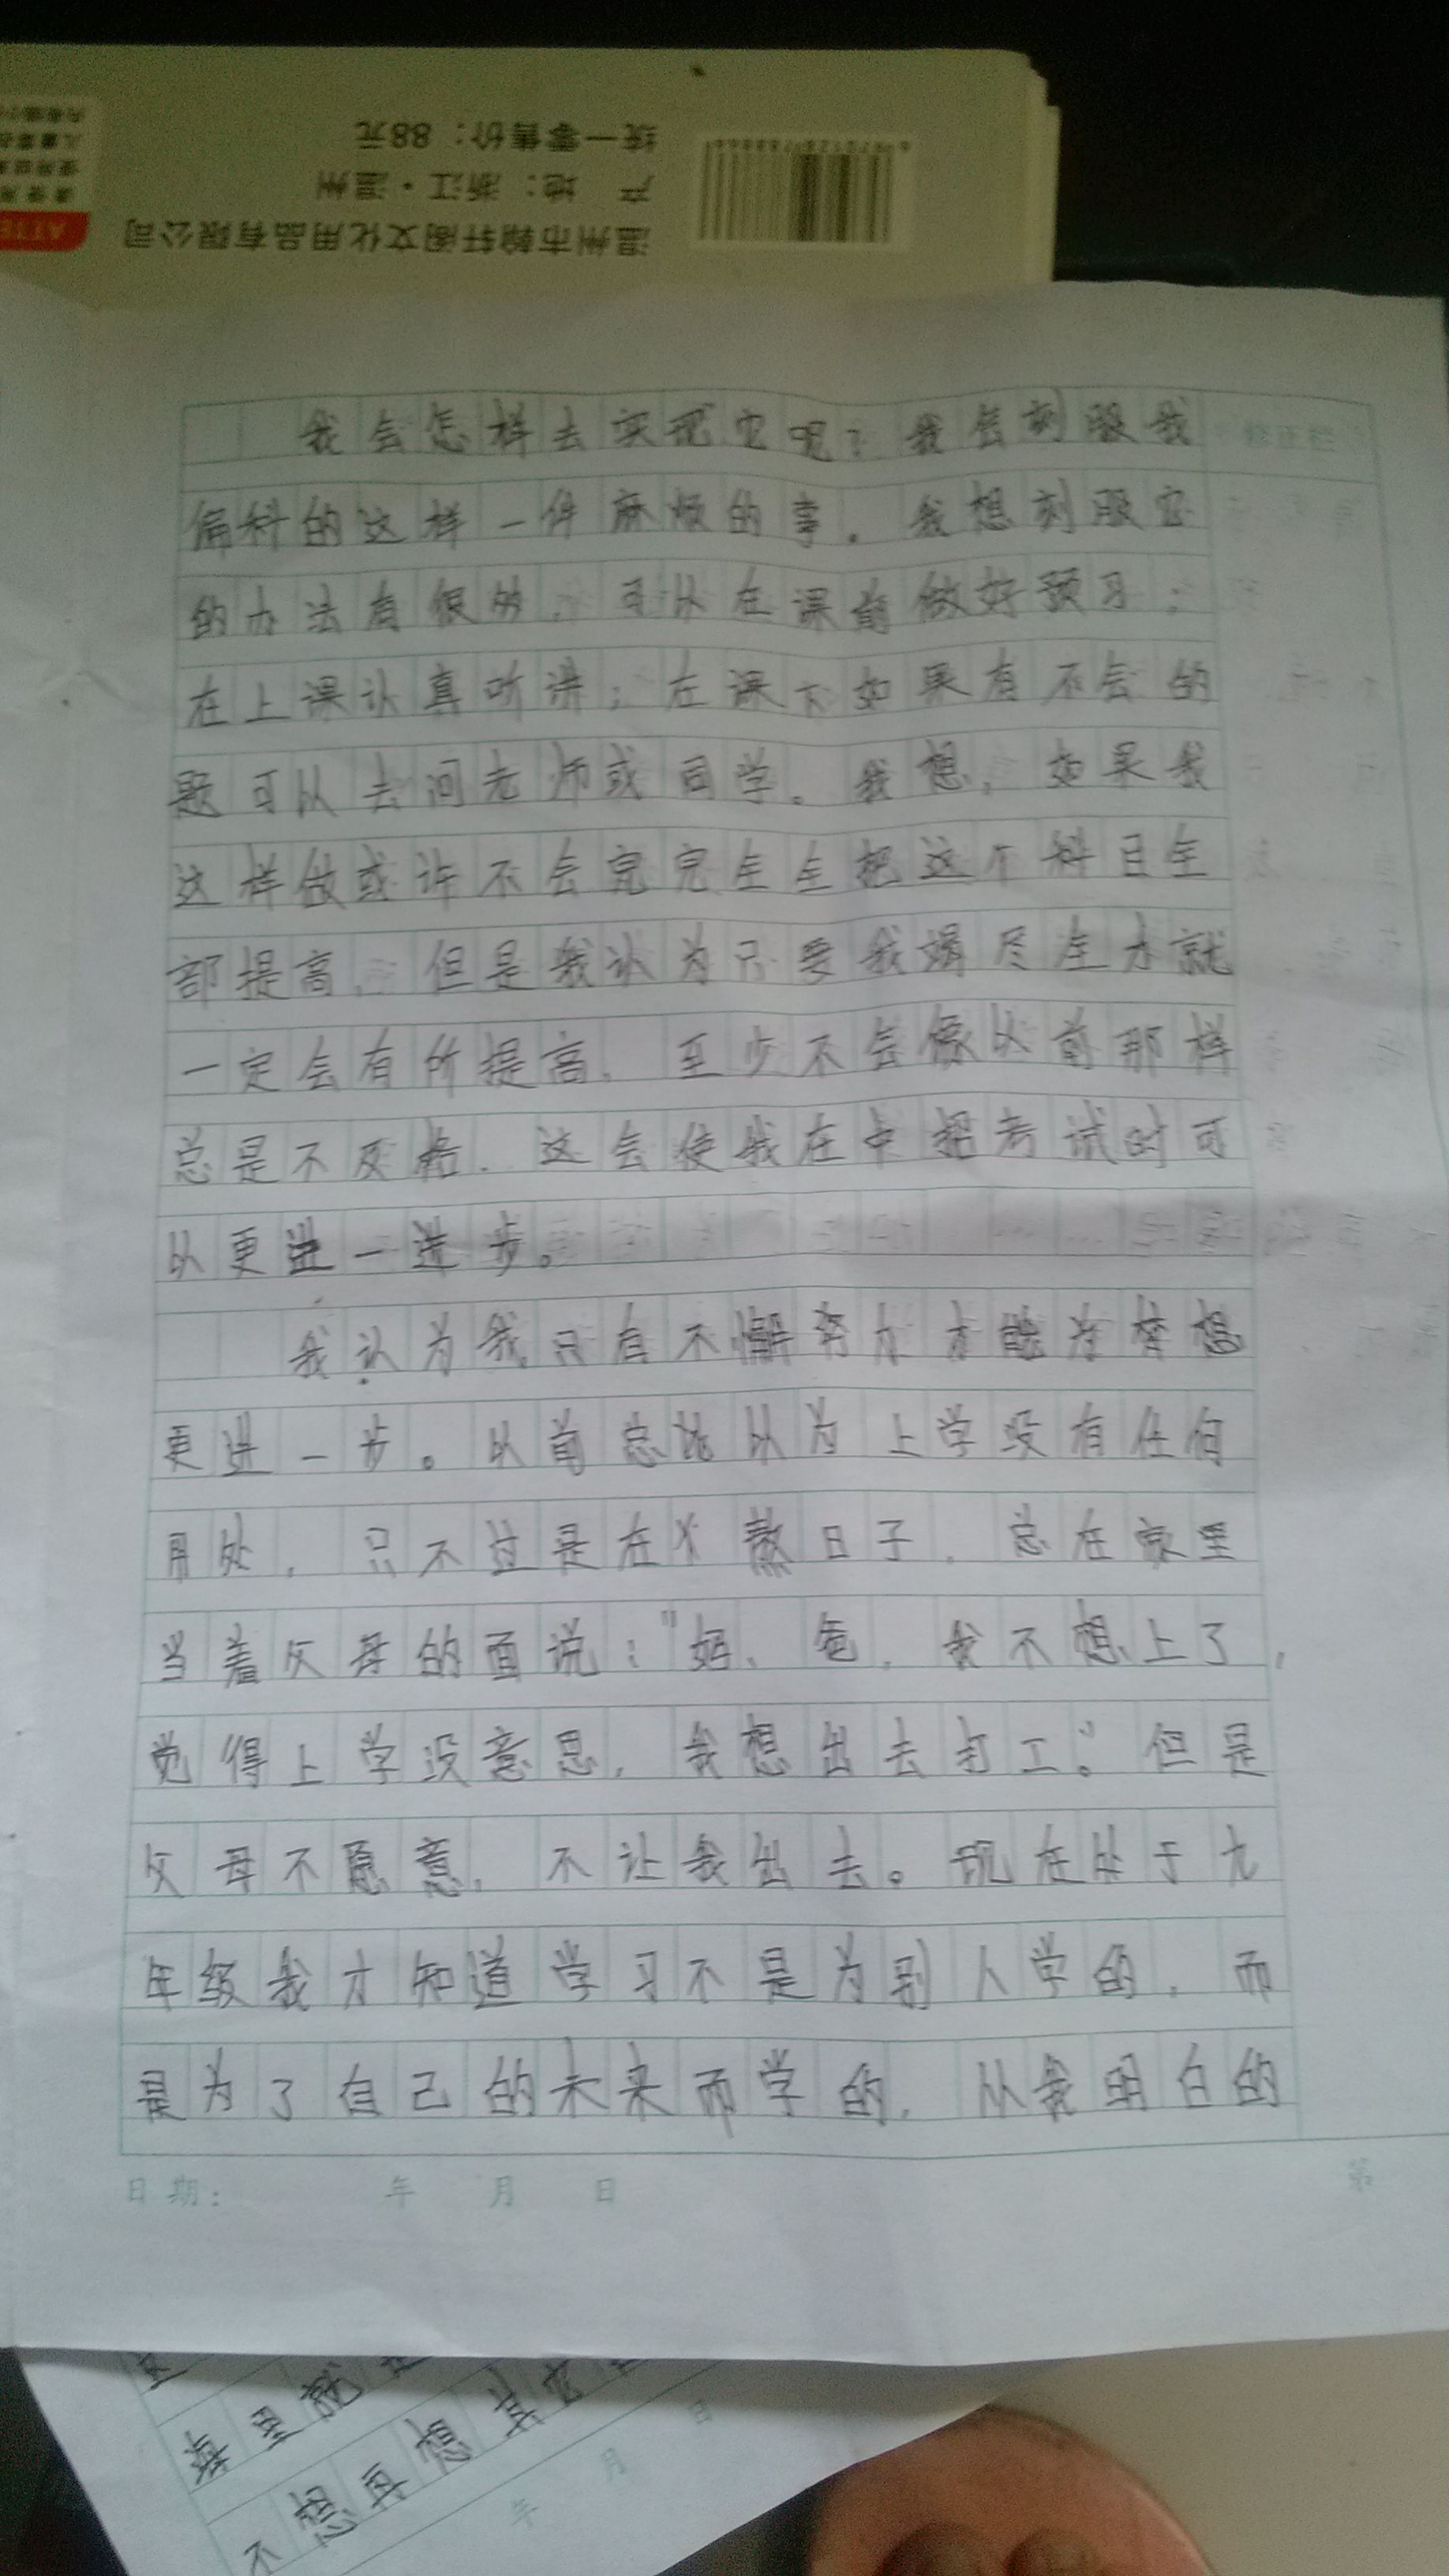 统一零售价：88元
产 地：浙江·温州
温州市翰轩阁文化用品有限公司
我会怎样去实现它呢？我会刻服我
偏科的这样一件麻烦的事。我想刻服它
的办法有很多，可以在课前做好预习；
在上课认真听讲；在课下如果有不会的
题可以去问老师或同学。我想，如果我
这样做或许不会完完全全把这个科目全
部提高，但是我认为只要我竭尽全力就
一定会有所提高，至少不会像以前那样
总是不及格。这会使我在中招考试时可
以更进一进步。
我认为我只有不懈努力才能为梦想
更进一步。以前总说以为上学没有任何
用处，只不过是在熬日子，总在家里
当着父母的面说："妈、爸，我不想上了，
觉得上学没意思，我想出去打工。"但是
父母不愿意，不让我出去。现在处于九
年级我才知道学习不是为别人学的，而
是为了自己的未来而学的，从我明白的
日期： 年 月 日
第
海里就
不想再想其它
年 月 日